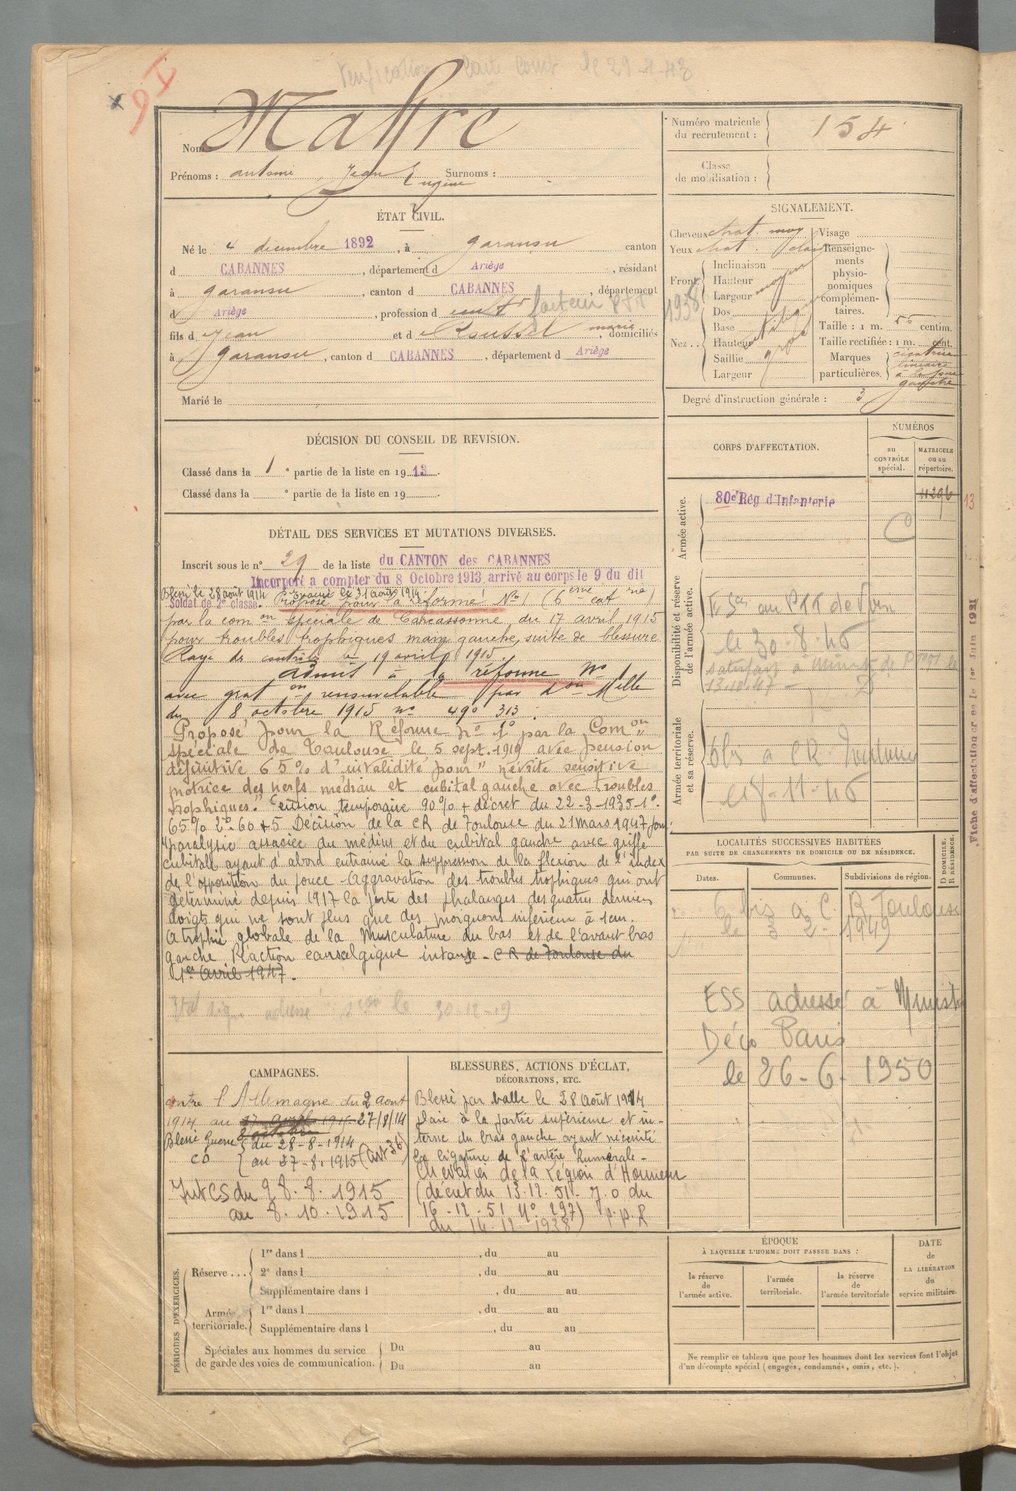 Vérification Carte Comb. le 29-8-43
91
Nom Maffre
Numéro matricule du recrutement : 154
Prénoms : antoine Jean Eugène Surnoms :
Classe de mobilisation :
ÉTAT CIVIL.
Né le 4 décembre 1892, à garanou canton
d CABANNES, département d Ariège, résidant
à garanou, canton d CABANNES, département
d Ariège, profession d facteur PTT
fils d Jean et d Roussel marie domiciliés
à garanou, canton d CABANNES, département d Ariège
Marié le
SIGNALEMENT.
Cheveux chat. moy
Yeux chat.
Front
Inclinaison
Hauteur
Largeur moyen
1938
Nez
Dos
Base
Hauteur
Saillie
Largeur
Visage
Renseignements physionomiques complémentaires.
Taille : 1 m. 55 centim.
Taille rectifiée : 1 m. cent.
Marques particulières. cicatrice linéaire à la joue gauche
Degré d'instruction générale : 3
DÉCISION DU CONSEIL DE REVISION.
Classé dans la 1e partie de la liste en 1913.
Classé dans la e partie de la liste en 19
DÉTAIL DES SERVICES ET MUTATIONS DIVERSES.
Inscrit sous le n° 29 de la liste du CANTON des CABANNES
Incorporé a compter du 8 Octobre 1913, arrivé au corps le 9 du dit
Blessé le 28 août 1914 Evacué le 31 août 1914
Soldat de 2e classe. Proposé pour la réforme No 1 (6ème catrie)
par la comon spéciale de Carcassonne, du 17 avril 1915
pour troubles trophiques main gauche, suite de blessure
Rayé des contrôles le 19 avril 1915.
admis à la réforme No 1
avec graton renouvelable par don Mlle
du 8 octobre 1915 no 490 313.
Proposé pour la Réforme no 1 par la Comon
spéciale de Toulouse le 5 sept. 1919 avec pension
définitive 65% d'invalidité pour " névrite sensitive
motrice des nerfs médian et cubital gauche avec troubles
trophiques." Pension temporaire 90% + décret du 22-3-1935-1°
65% 2°-60+5. Décision de la CR de Toulouse du 21 mars 1947 pour
Paralysie associée du médius et du cubital gauche avec griffe
cubitale ayant d'abord entrainé la suppression de la flexion de l'index
de l'opposition du pouce - Aggravation des troubles trophiques qui ont
déterminé depuis 1917 la perte des phalanges des quatre derniers
doigts qui ne sont plus que des moignons inférieur à 1cm.
Atrophie globale de la musculature du bras et de l'avant bras
gauche. Réaction causalgique intense. CR de Toulouse du
1er avril 1947.
adressé le 30-12-19
CORPS D'AFFECTATION.
NUMÉROS
au CONTRÔLE spécial.
MATRICULE ou au répertoire.
Armée active.
80e Rég d'Infanterie
11296
13
C
Disponibilité et réserve de l'armée active.
au PTT de Foix
le 30-8-46
satisfait à
13-10-47
Armée territoriale et sa réserve.
6 bis a CR Toulouse
le 8-11-46
Fiche d'affectation créée le 1er Juin 1921
LOCALITÉS SUCCESSIVES HABITÉES
PAR SUITE DE CHANGEMENTS DE DOMICILE OU DE RÉSIDENCE.
Dates.
Communes.
Subdivisions de région.
D DOMICILE. R RÉSIDENCE.
6 bis a C. R Toulouse
le 3 2- 1949
ESS adressé à Ministre
Déco Paris
le 26-6-1950
CAMPAGNES.
contre l'Allemagne du 2 aout
1914 au 27/8/14
Blessé Guerre du 28-8-1914
CD au 27-8-1915 (art 36)
Int CS du 28.8.1915
au 8.10.1915
BLESSURES, ACTIONS D'ÉCLAT,
DÉCORATIONS, ETC.
Blessé par balle le 28 août 1914
Plaie à la partie supérieure et in-
terne du bras gauche ayant nécessité
la ligature de l'artère humérale-
Chevalier de la Légion d'Honneur
(décret du 13.12.51. J.O du
16-12-51 No 297) p.p.R
du 14-12-1938)
PÉRIODES D'EXERCICES.
Réserve ...
1re dans l , du au
2e dans l , du au
Supplémentaire dans l , du au
Armée territoriale.
1re dans l , du au
Supplémentaire dans l , du au
Spéciales aux hommes du service de garde des voies de communication.
Du au
Du au
ÉPOQUE
À LAQUELLE L'HOMME DOIT PASSER DANS :
la réserve de l'armée active.
l'armée territoriale.
la réserve de l'armée territoriale
DATE de LA LIBÉRATION du service militaire.
Ne remplir ce tableau que pour les hommes dont les services font l'objet
d'un décompte spécial (engagés, condamnés, omis, etc.).